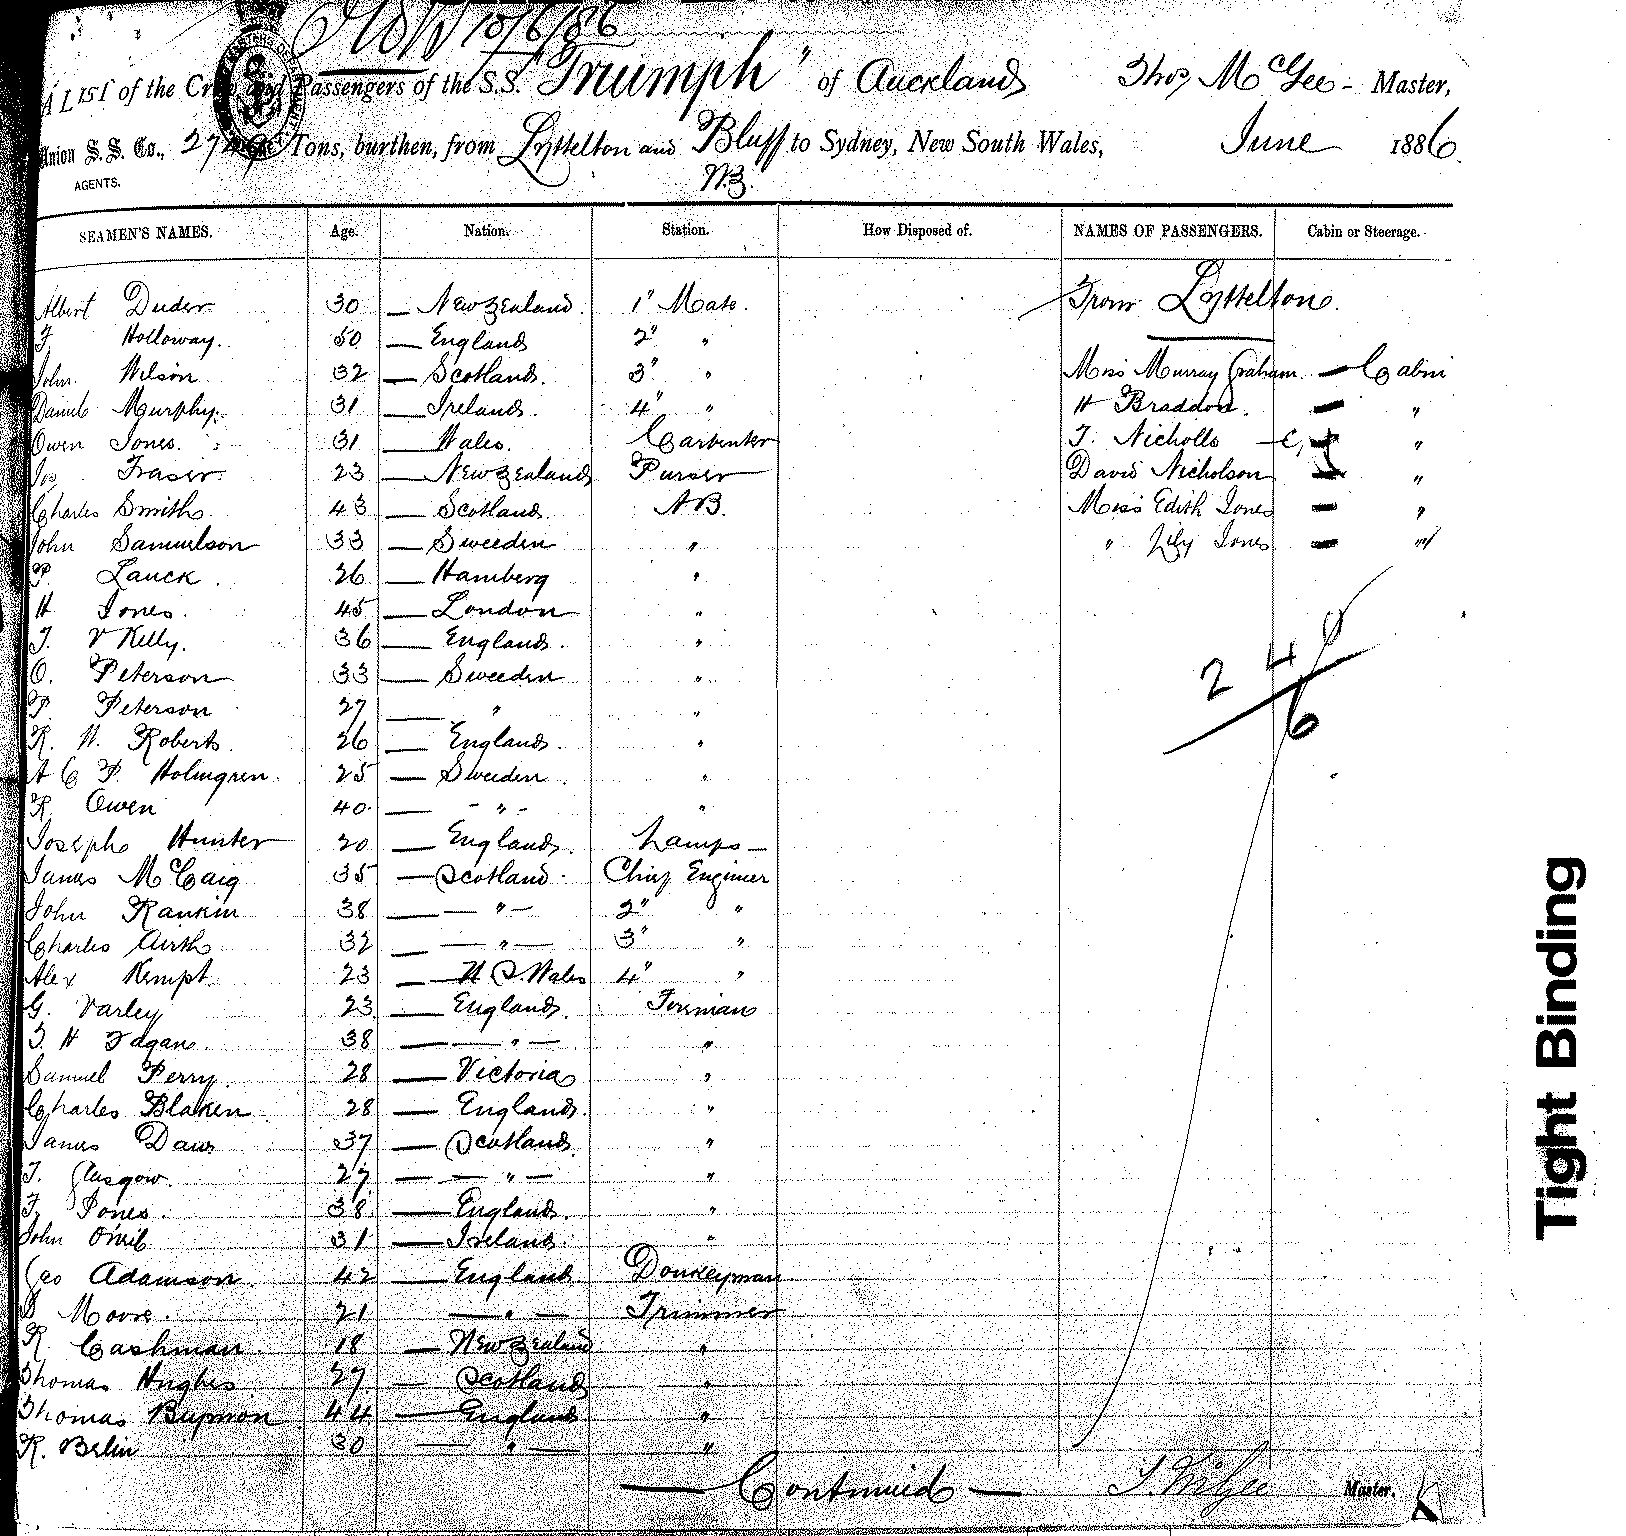 10/6/86
A LIST of the Crew and Passengers of the S.S. "Triumph" of Auckland Thos McGee - Master,
Union S. S. Co., Tons, burthen, from Lyttelton and Bluff to Sydney, New South Wales, June 1886.
AGENTS. N.Z.
SEAMEN'S NAMES. Age. Nation. Station. How Disposed of. NAMES OF PASSENGERS. Cabin or Steerage.
Albert Duder 30 — New Zealand 1" Mate. From Lyttelton.
F. Holloway. 50 — England 2" "
John Wilson 32 — Scotland. 3" " Miss Murray Graham — Cabin
Daniel Murphy. 31 — Ireland. 4" " H Braddon. — "
Owen Jones. 31 — Wales. Carpenter T. Nicholls "
Jos Fraser 23 — New Zealand Purser David Nicholson — "
Charles Smith 43 — Scotland AB. Miss Edith Jones — "
John Samuelson 33 — Sweeden " " Lily Jones — "
P. Lauck. 26 — Hamberg "
H Jones. 45 — London "
T. V Kelly. 36 — England. "
O. Peterson 33 — Sweeden "
P. Peterson 27 — " "
R. H. Roberts. 26 — England. "
A C P. Holmgren. 25 — Sweeden "
R. Owen 40. — - " - "
Joseph Hunter 20 — England. Lamps —
James McCaig 35 — Scotland. Chief Engineer
John Rankin 38 — — " — 2" "
Charles Airth 32 — — " — 3" "
Alex Kempt 23 — N. S. Wales 4" "
G. Varley 23 — England. Fireman
T. H Fagan. 38 — — " — "
Samuel Perry. 28 — Victoria "
Charles Blaken 28 — England. "
James Daws 37 — Scotland "
T. Glasgow. 27 — — " — "
F. Jones. 38 — England. "
John O'Neil 31 — Ireland. "
Geo Adamson. 42 — England Donkeyman
Moore. 21 — " — Trimmer
R Cashman 18 — New Zealand "
Thomas Hughes 27 — Scotland "
Thomas 44 — England "
R. Berlin 30 — " — "
— Continued — T. McGee Master.
Tight Binding